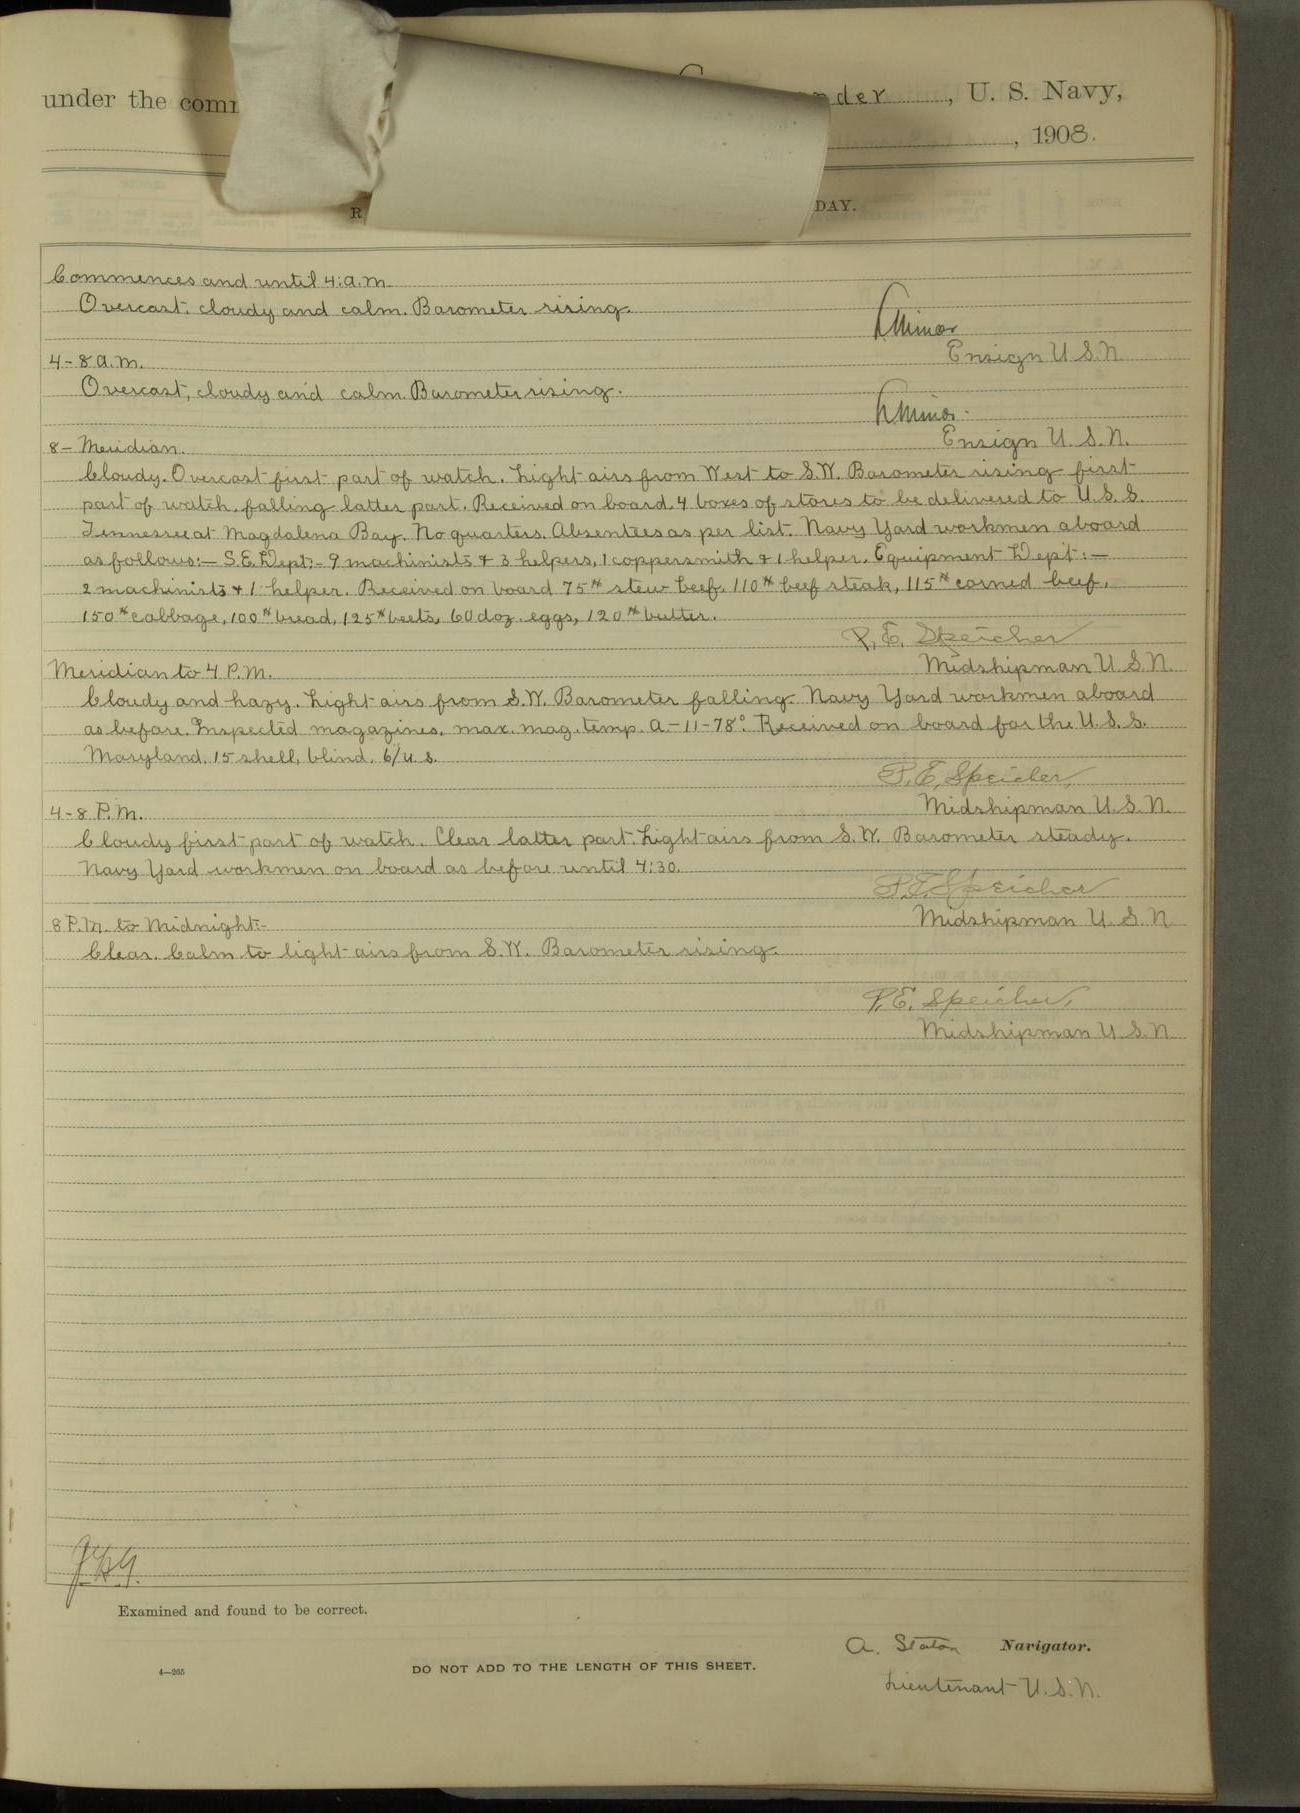 under the comm
nder, U. S. Navy,
, 1908.
R
DAY.
Commences and until 4: a.m.
Overcast, cloudy and calm. Barometer rising.
Minor
Ensign U.S.N.
4-8 a.m.
Overcast, cloudy and calm. Barometer rising.
Minor.
Ensign U.S.N.
8 - Meridian.
Cloudy. Overcast first part of watch. Light airs from West to S.W. Barometer rising first
part of watch, falling latter part. Received on board 4 boxes of stores to be delivered to U.S.S.
Tennessee at Magdalena Bay. No quarters. Absentees as per list. Navy Yard workmen aboard
as follows:- S.E. Dept:- 9 machinists & 3 helpers, 1 coppersmith & 1 helper. Equipment Dep't:-
2 machinists & 1 helper. Received on board 75# stew beef, 110# beef steak, 115# corned beef,
150# cabbage, 100# bread, 125# beets, 60 doz. eggs, 120# butter.
P. E. Speicher
Midshipman U.S.N.
Meridian to 4 P.M.
Cloudy and hazy. Light airs from S.W. Barometer falling. Navy Yard workmen aboard
as before. Inspected magazines, max. mag. temp. A-11-78°. Received on board for the U.S.S.
Maryland, 15 shell, blind, 6"
P. E. Speicher,
Midshipman U.S.N.
4-8 P.M.
Cloudy first part of watch. Clear latter part. Light airs from S.W. Barometer steady.
Navy Yard workmen on board as before until 4:30.
P. E. Speicher
Midshipman U.S.N
8 P.M. to Midnight:-
Clear. Calm to light airs from S.W. Barometer rising.
P. E. Speicher,
Midshipman U.S.N
Examined and found to be correct.
A. Staton Navigator.
4—265
DO NOT ADD TO THE LENGTH OF THIS SHEET.
Lieutenant U.S.N.